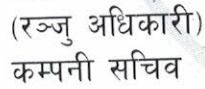 (रञ्जु अधिकारी)
कम्पनी सचिव